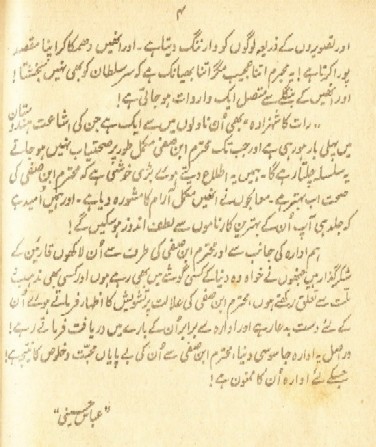 ۴
اور تصویروں کے ذریعہ لوگوں کو وارننگ دیتا ہے۔ اور انھیں دھمکا کر اپنا مقصد
پورا کرتا ہے! یہ مجرم اتنا عجیب مگر اتنا بھیانک ہے کہ سر سلطان کو بھی نہیں بخشتا!
اور انھیں کے بنگلے سے متصل ایک واردات ہو جاتی ہے!
"رات کا شہزادہ" بھی اُن ناولوں میں سے ایک ہے جن کی اشاعت ہندوستان
میں پہلی بار ہو رہی ہے اور جب تک محترم ابن صفی مکمل طور پر صحتیاب نہیں ہو جاتے
یہ سلسلہ چلتا رہے گا۔ ہمیں یہ اطلاع دیتے ہوئے بڑی خوشی ہے کہ محترم ابن صفی کی
صحت اب بہتر ہے۔ معالجوں نے انھیں مکمل آرام کا مشورہ دیا ہے۔ اور ہمیں اُمید ہے
کہ جلد ہی آپ اُن کے بہترین کارناموں سے لطف اندوز ہو سکیں گے!
ہم ادارہ کی جانب سے اور محترم ابن صفی کی طرف سے اُن لاکھوں قارئین کے
شکر گذار ہیں جنھوں نے خواہ وہ دنیا کے کسی گوشے میں بھی رہے ہوں اور کسی بھی مذہب و
ملت سے تعلق رکھتے ہوں، محترم ابن صفی کی علالت پر تشویش کا اظہار فرماتے ہوئے اُن
کے لئے دست بدعا رہے اور ادارہ سے برابر اُن کے بارے میں دریافت فرماتے رہے!
در اصل یہ ادارہ جاسوسی دنیا، محترم ابن صفی سے اُن کی بے پایاں محبّت و خلوص کا نتیجہ ہے!
جسکے لئے ادارہ اُن کا ممنون ہے!
"عباس حسینی"